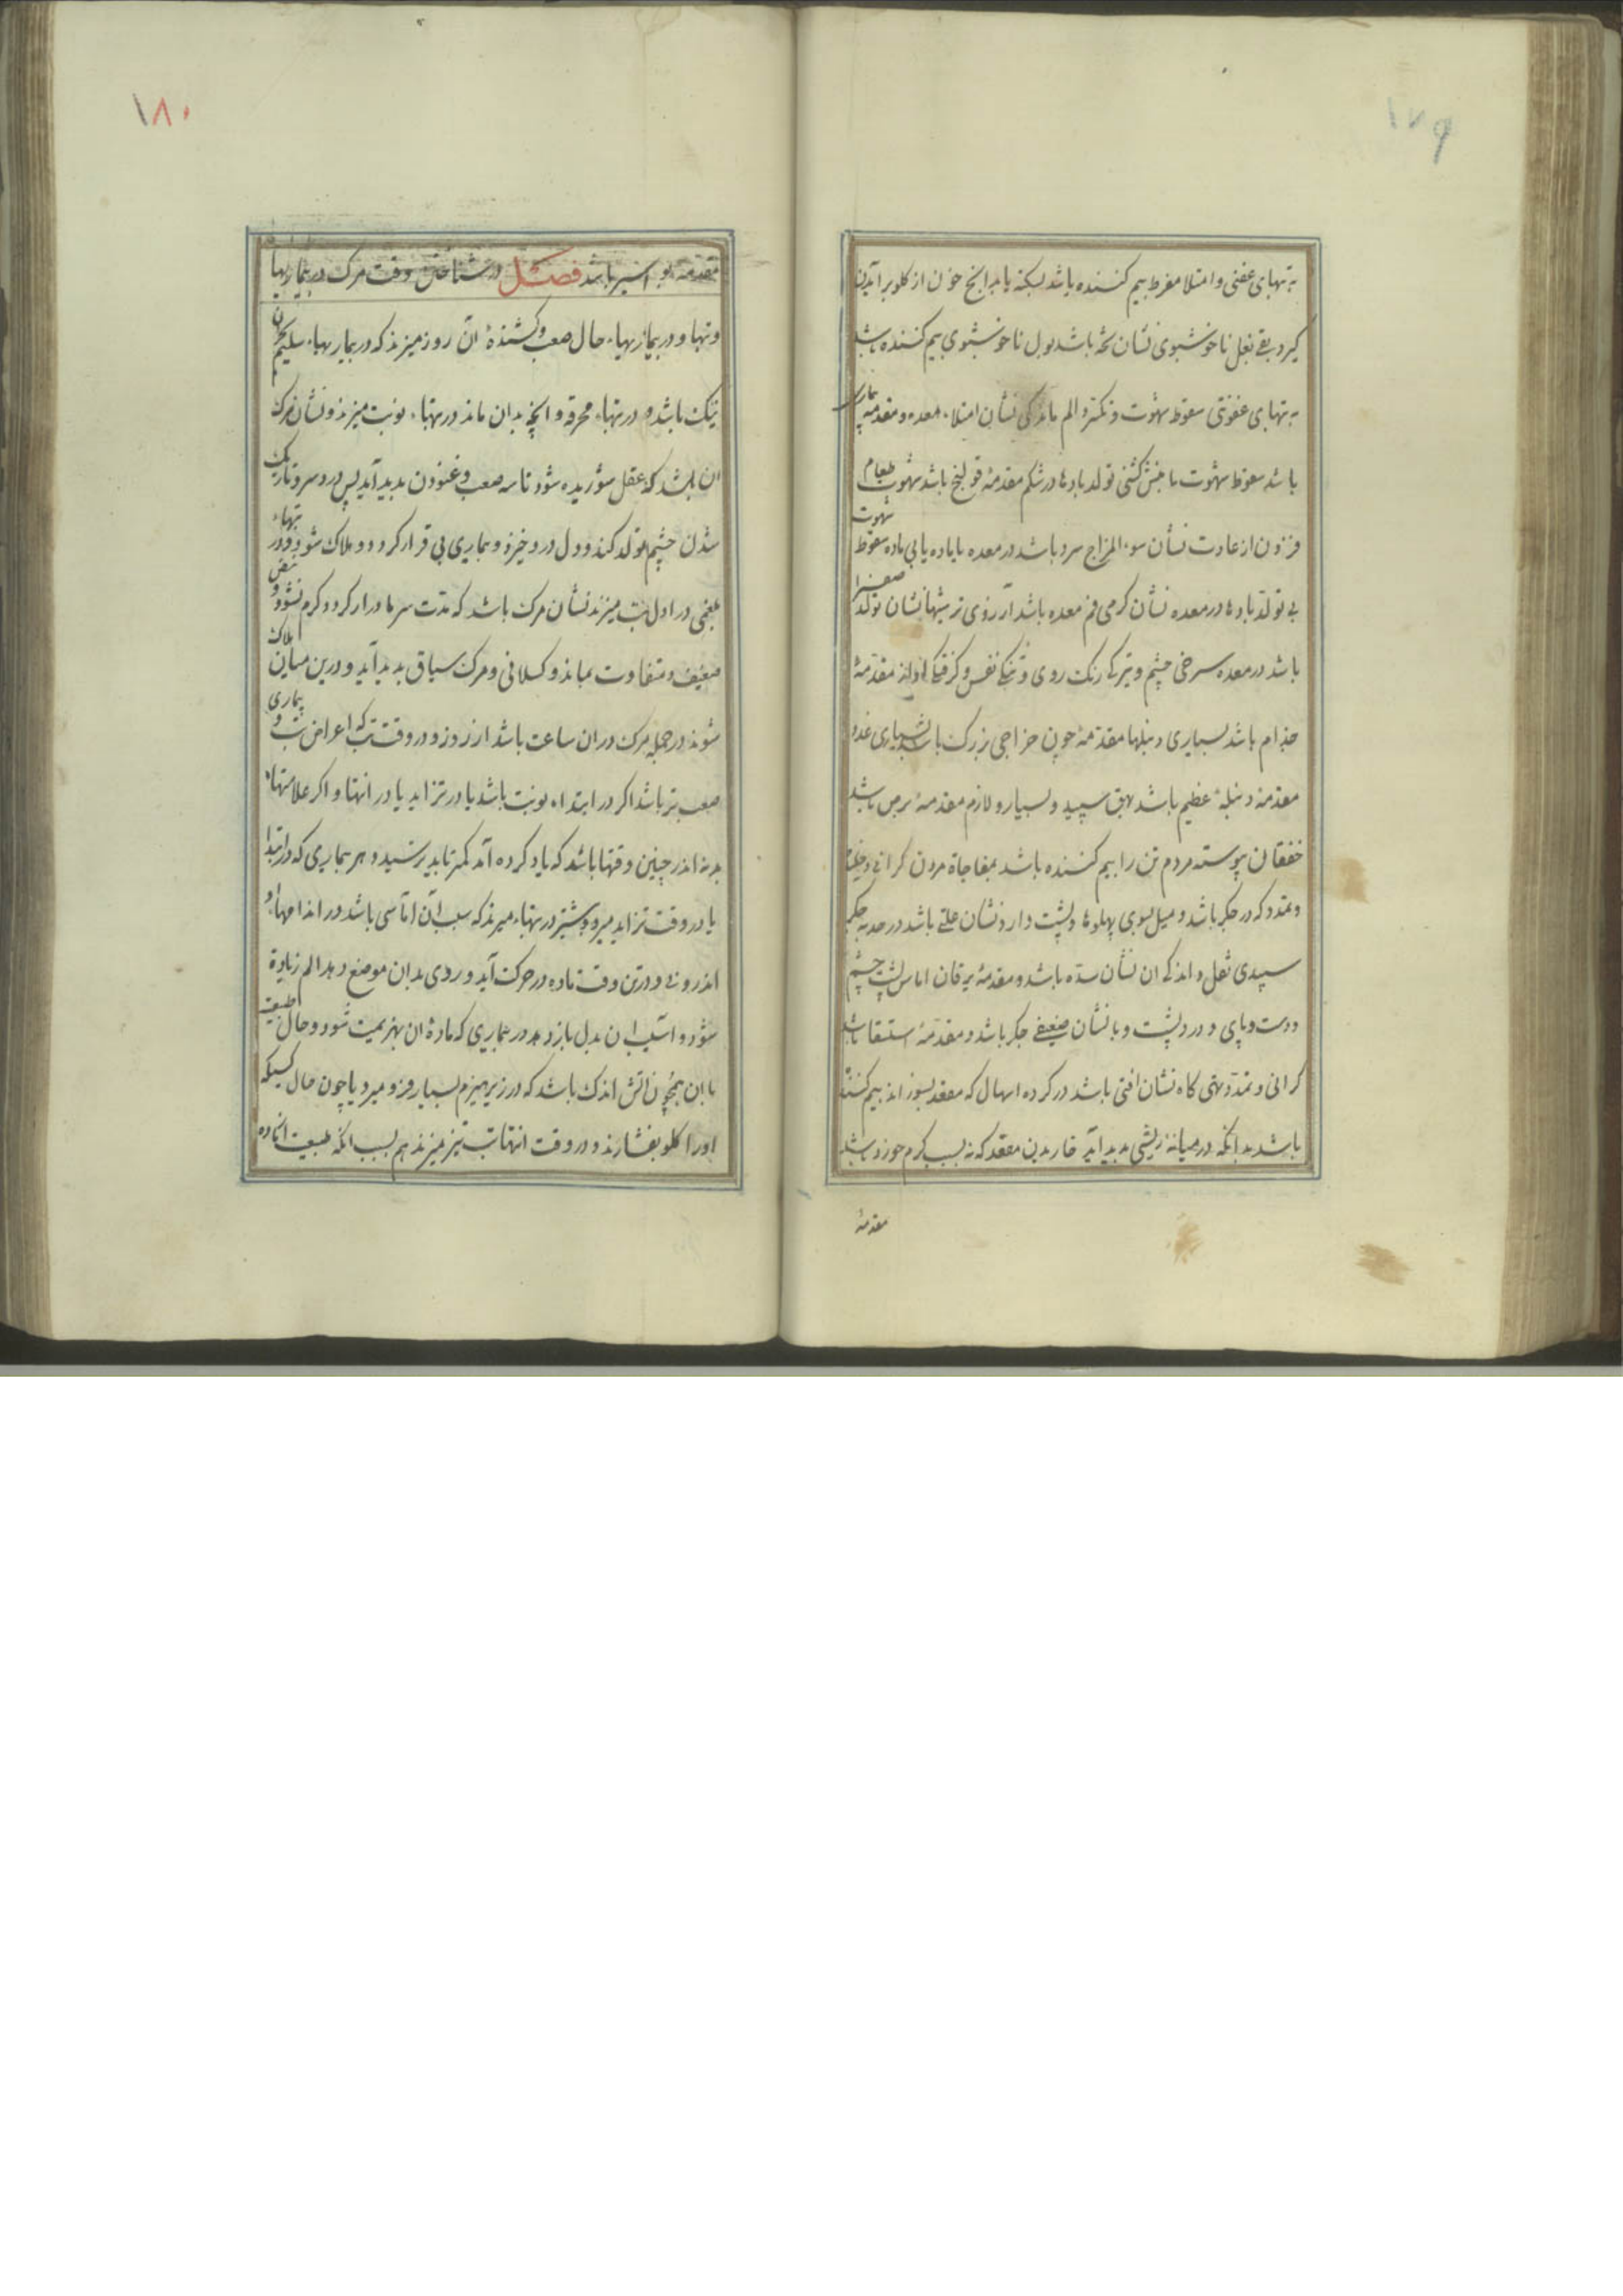 ۱۷۹
به تبهای عفنی و امتلا مفرط بیم کننده باشد بسکته یا بدانچ خون از کلو برآید
کیرد بقی ثفل ناخوشبوی نشان تخمه باشد بول ناخوشبوی بیم کننده باشد
به تبهای عفونتی سقوط شهوت و تکسر و الم ماندکی نشان امتلاء معده و مقدمه بیماری
باشد سقوط شهوت با منش کشتی تولد بادها در شکم مقدمهٔ قولنج باشد شهوت طعام
فزون از عادت نشان سوء المزاج سرد باشد در معده با ماده یا بی ماده سقوط شهوت
بی تولد بادها در معده نشان کرمی فم معده باشد آرزوی ترشیها نشان تولد صفرا
باشد در معده سرخی چشم و تیرکی رنک روی و تنکی نفس و کرفتکی اواز مقدمهٔ
جذام باشد بسیاری دنبلها مقدمهٔ خون خراجی بزرک باشد بسیاری غدد
مقدمهٔ دنبلهٔ عظیم باشد بهق سپید و بسیار و لازم مقدمهٔ برص باشد
خفقان پیوسته مردم تن را بیم کننده باشد بمفاجاة مردن کرانی و خلیدن
و تمدد که در جکر باشد و میل بسوی پهلوها و پشت دارد نشان علتی باشد در حدبه جکر
سپیدی ثفل و اندکی ان نشان سده باشد و مقدمهٔ یرقان اماس پشت چشم
و دست و پای و درد پشت و با نشان ضعیفی جکر باشد و مقدمهٔ استسقا باشد
کرانی و تمدد تهی کاه نشان افتی باشد در کرده اسهال که مقعد بسوزاند بیم کننده
باشد بدانکه در میانه ریشی پدید آید خاریدن مقعد که نه بسبب کرم خورد باشد
مقدمهٔ
۱۸۰
مقدمهٔ بواسیر باشد فصل در شناختن وقت مرک در بیماریها
و تبها و در بیماریهاء حال صعب و کشندهٔ آن روز میرند که در بیماریهاء سلیم بحران
نیک باشد و در تبهاء محرقه و انچه بدان ماند در تبهاء نوبت میرند و نشان مرک
ان باشد که عقل شوریده شود تاسه صعب و غنودن پدید آید پس درد سر و تاریک
شدن چشم تولد کند و دل درد خیزد و بیماری بی قرار کردد و هلاک شود و در تبهاء
بلغمی در اول تب میرند نشان مرک باشد که مدت سرما دراز کردد و کرم نشود و نبض
ضعیف و متفاوت بماند و کسلانی و مرک سیاق پدید آید و درین میان هلاک
شوند در جمله مرک در ان ساعت باشد از روز و در وقت تب که اعراض تب و بیماری
صعب تر باشد اکر در ابتداء نوبت باشد یا در تزاید یا در انتها و اکر علامتهاء
بد نه اندر چنین وقتها باشد که یاد کرده آمد کمتر باید ترسید و هر بیماری که در ابتدا
یا در وقت تزاید میرد و بیشتر در تبهاء میرند که سبب آن اماسی باشد در اندامهاء
اندرونی و درین وقت ماده در حرکت آید و روی بدان موضع دهد الم زیادة
شود و اسیب ان بدل باز دهد در بیماری که مادهٔ ان بهزیمت شود و حال طبیعت
با ان همچون اتش اندک باشد که در زیر هیزم بسیار فرو میرد یا چون حال کسیکه
او را کلو بفشارند و در وقت انتها تب تیز میرند هم بسبب انکه طبیعت از ماده